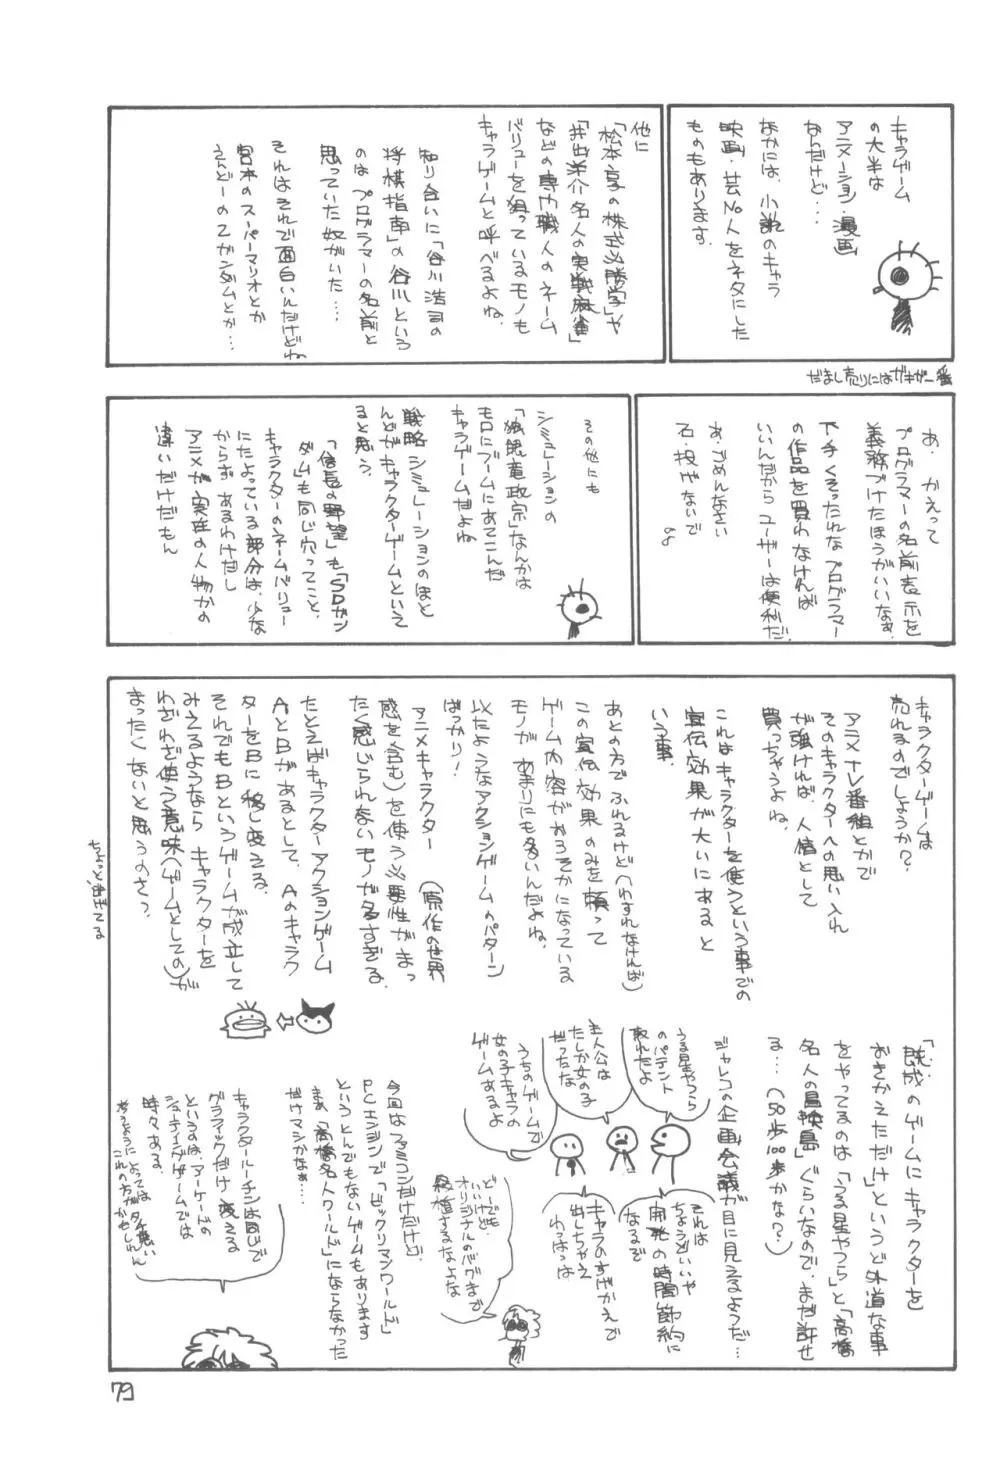 キャラゲーム
の大半は
アニメーション・漫画
なんだけど…
なかには、小説のキャラ
映画・芸No人をネタにした
ものもあります。
他に
「松本亨の株式必勝学」や
「井出洋介名人の実戦麻雀」
などの専門職人のネーム
バリューを狙っているモノも
キャラゲームと呼べるよね。
知り合いに「谷川浩司の
将棋指南」の谷川という
のはプログラマーの名前と
思っていた奴がいた…
それはそれで面白いんだけどね
宮本のスーパーマリオとか
えんどーのZガンダムとか…
だまし売りにはガキが一番
あ、かえって
プログラマーの名前表示を
義務づけたほうがいいなぁ
下手くそったれなプログラマー
の作品を買わなければ
いいんだからユーザーは便利だ。
あ、ごめんなさい
石、投げないで
その他にも
シミュレーションの
「独眼竜政宗」なんかは
モロにブームにあてこんだ
キャラゲームだよね
戦略シミュレーションのほと
んどがキャラクターゲームといえ
ると思う。
「信長の野望」も「SDガン
ダム」も同じ穴ってこと、
キャラクターのネームバリュー
にたよっている部分は、少な
からず あるわけだし
アニメが実在の人物かの
違いだけだもん
キャラクターゲームは
売れるのでしょうか?
アニメ・テレビ番組とかで
そのキャラクターへの思い入れ
が強ければ、人情として
買っちゃうよね。
これはキャラクターを使うという事での
宣伝効果が大いにあると
いう事、
あとの方でふれるけど(わすれなければ)
この宣伝効果のみを頼って
ゲーム内容がおろそかになっている
モノがあまりにも多いんだよね、
似たようなアクションゲームのパターン
ばっかり!
アニメキャラクター(原作の世界
感を含む)を使う必要性がまっ
たく感じられないモノが多すぎる
たとえばキャラクターアクションゲーム
AとBがあるとして、Aのキャラク
ターをBに移し変える。
それでもBというゲームが成立して
みえるようなら キャラクターを
わざわざ使う意味(ゲームとしての)が
まったくないと思うのさっ。
「既成のゲームにキャラクターを
おきかえただけ」というど外道な事
をやってるのは「うる星やつら」と「高橋
名人の冒険島」ぐらいなので、まだ許せ
る…(50歩100歩かな?)
ジャレコの企画会議が目に見えるようだ…
うる星やつら
のパテント
取れたよ
主人公は
たしか女の子
だったな
うちのゲームで
女の子キャラの
ゲームあるよ
それは
ちょうどいいや
開発の時間節約に
なるぞ
キャラのすげかえで
出しちゃえ
わっはっは
どーでも
いいけど、
オリジナルのバグまで
移植するなよな
今回はファミコンだけだけど、
PCエンジンで「ビックリマンワールド」
というとんでもないゲームもあります
まぁ「高橋名人ワールド」にならなかった
だけマシかなぁ…
キャラクタールーチンは同じで
グラフィックだけ変える
というのは、アーケードの
シューティングゲームでは
時々ある。
考えようによっては
これの方がタチ悪い
かもしれん
79